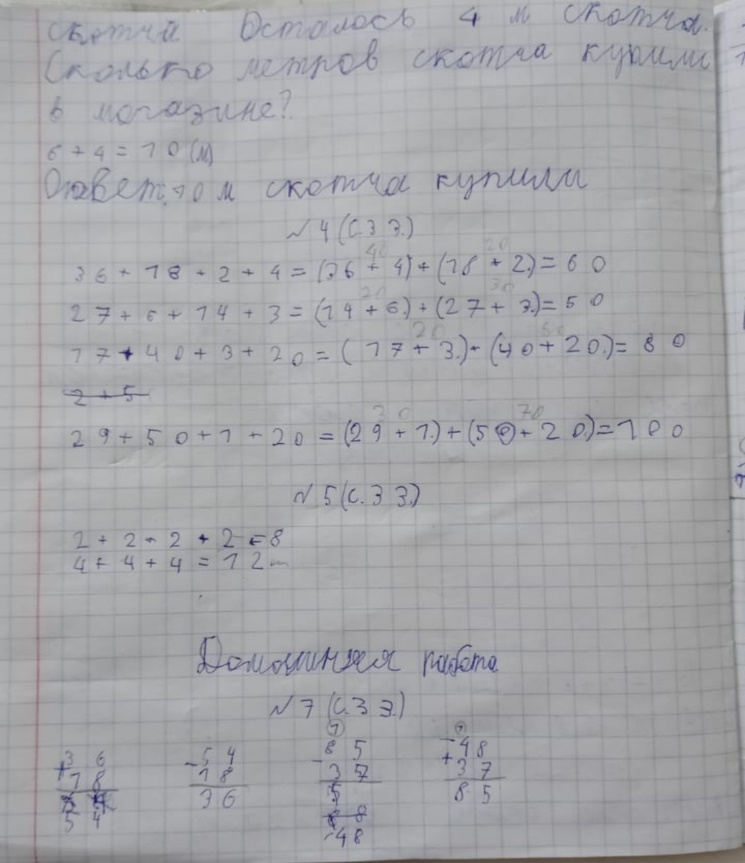 скотча Осталось 4 м скотча.
Сколько метров скотча купили
в магазине?
6 + 4 = 10 (м)
Ответ: 10 м скотча купили
№ 4 (с. 33.)
40 20
36 + 18 + 2 + 4 = (36 + 4) + (18 + 2) = 60
20 30
27 + 6 + 14 + 3 = (14 + 6) + (27 + 3) = 50
20 60
17 + 40 + 3 + 20 = (17 + 3) + (40 + 20) = 80
2 + 5
30 70
29 + 50 + 1 + 20 = (29 + 1) + (50 + 20) = 100
№ 5 (с. 33.)
2 + 2 + 2 + 2 = 8
4 + 4 + 4 = 12
Домашняя работа
№ 7 (с. 33.)
+ 36
18
54
- 54
18
36
- 85
37
48
+ 48
37
85